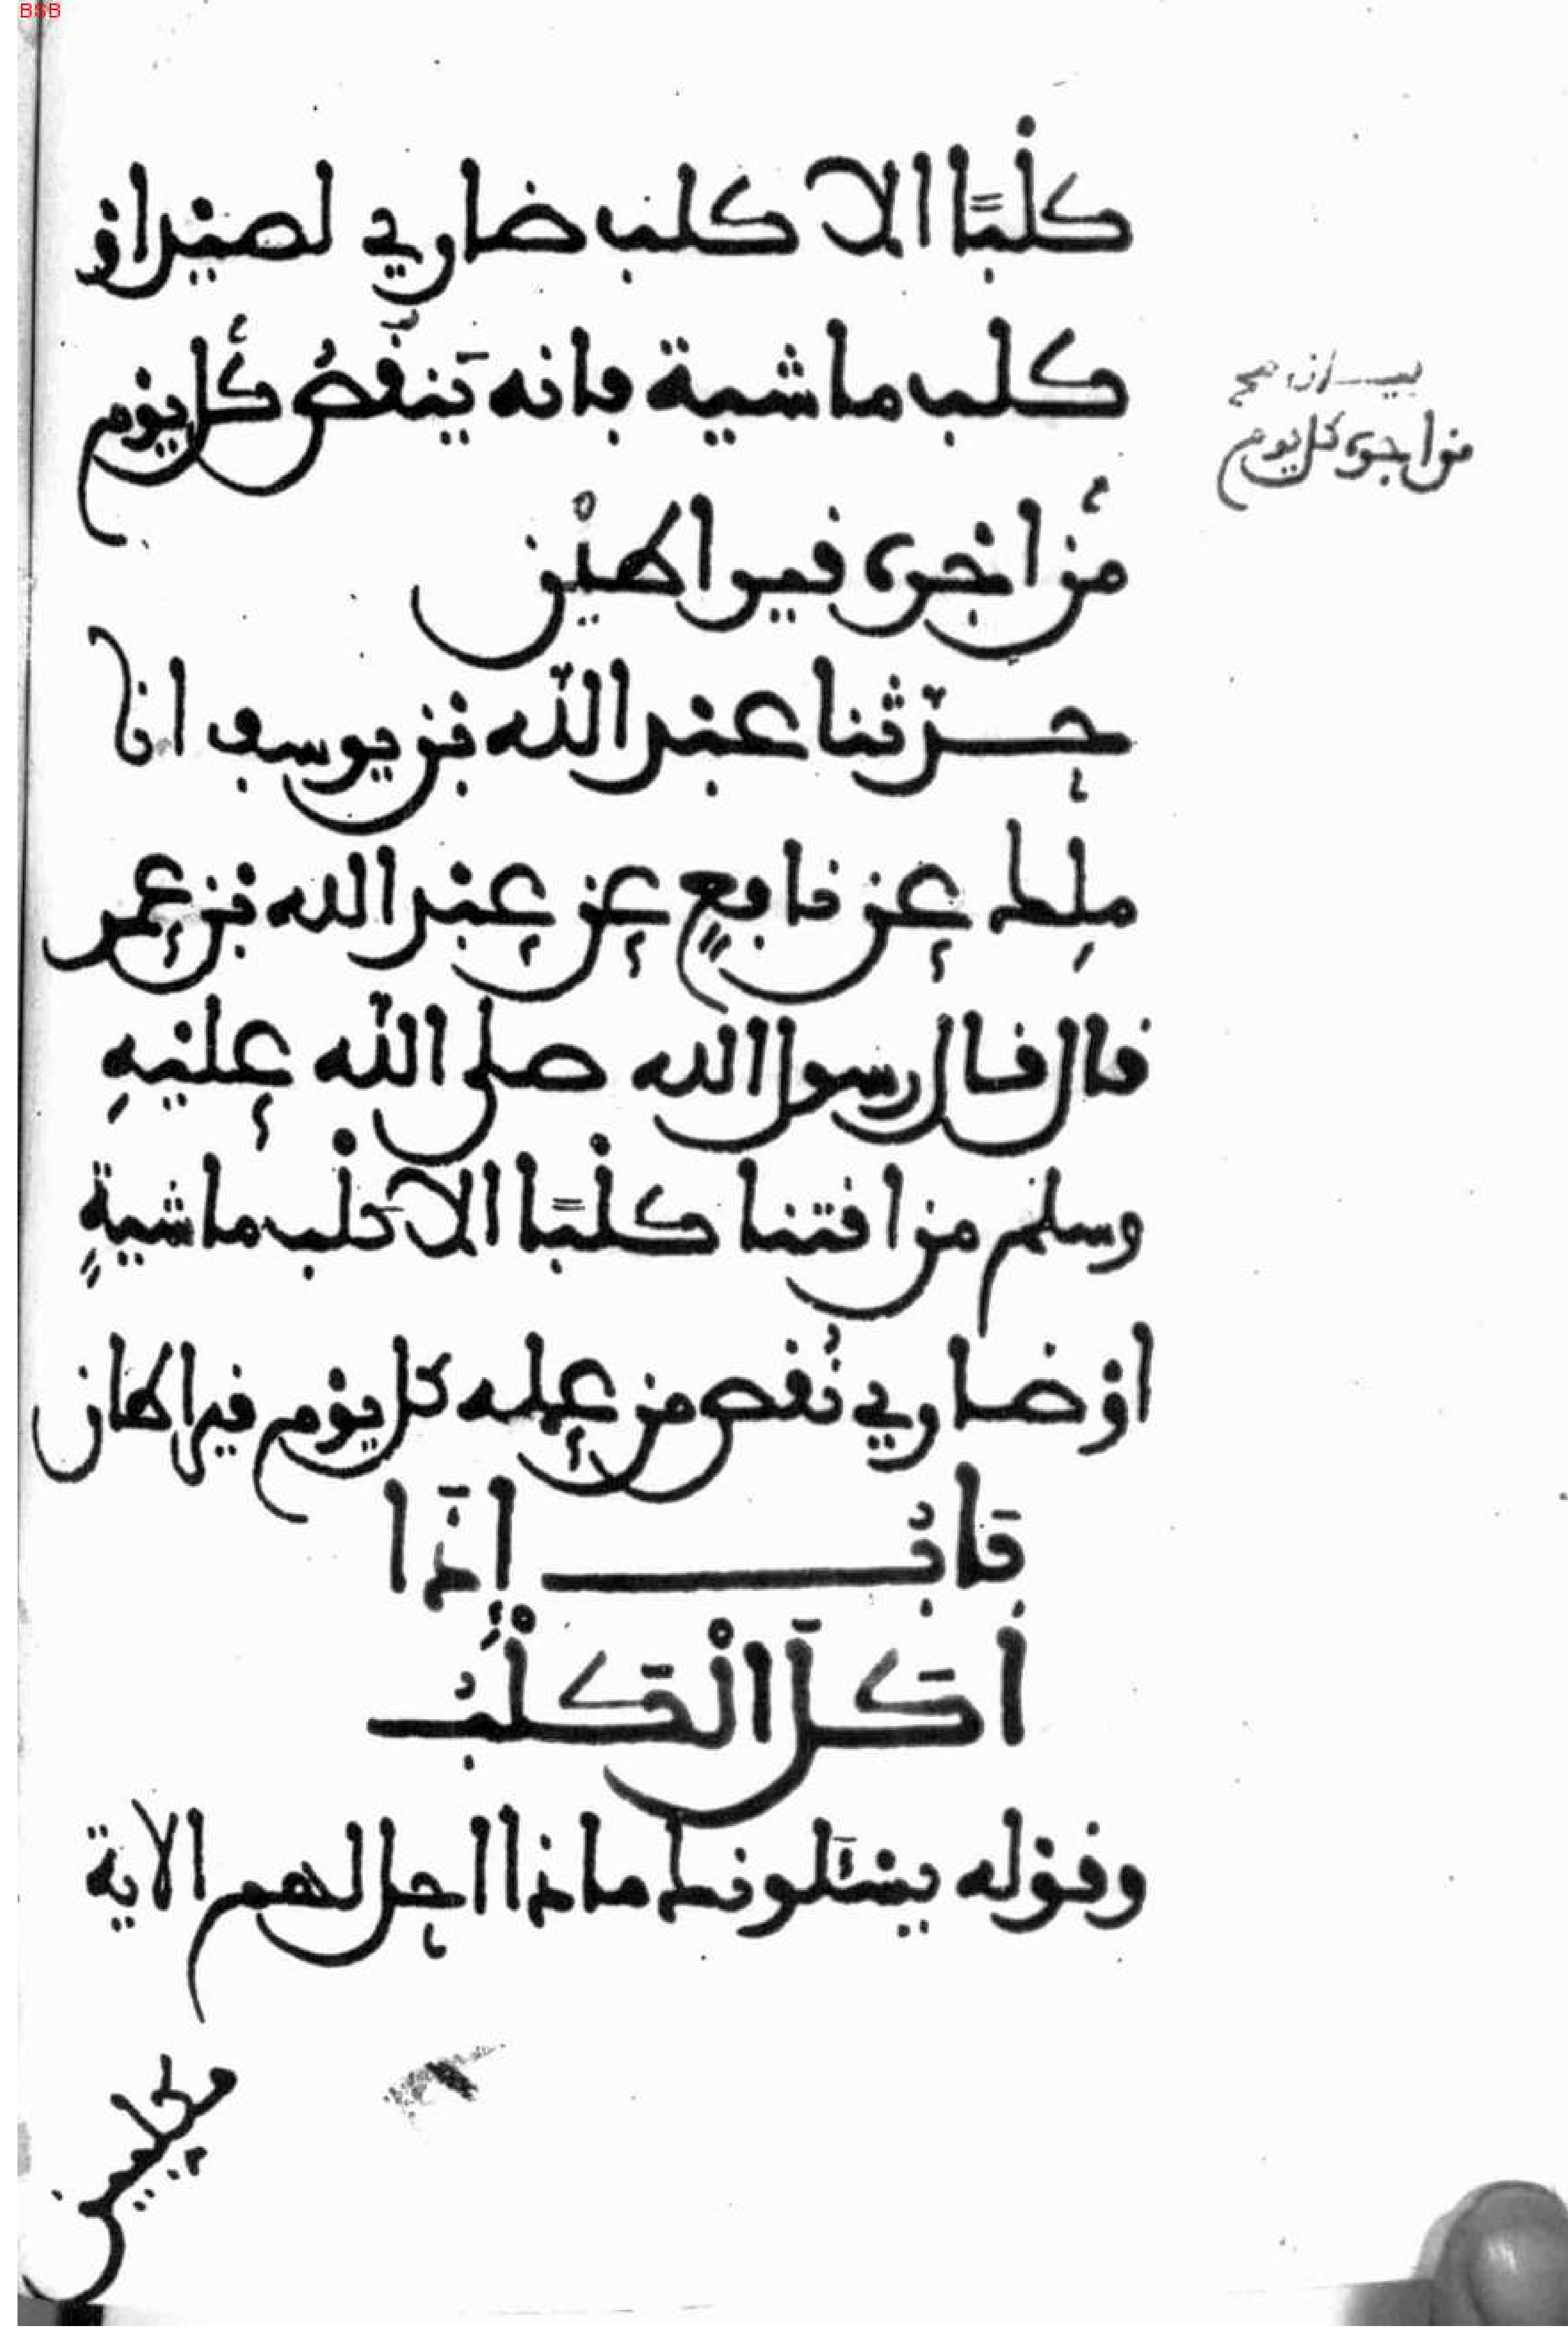 BSB
كلْبًا الا كلب ضاري لصيد اوْ
كلب ماشية فانه يَنقُصُ كُل يوْم
مِنُ اجْره قيراطيْن
حدّثنا عبْد اللّه بْن يوسف انا
ملِك عن نافعٍ عن عبْد الله بْن عمر
قال قال رسول الله صلى اللّه عليْهِ
وسلم من اقتنا كلْبًا الا كلْب ماشيةٍ
اوْ ضاري نُقص من عمله كل يوْم قيراطان
بَابُ اِذَا
اَكَلَ الْكَلْبُ
وقوْله يسْـَٔلونك ماذا احل لهم الاية
من اجره كل يوم
مكلبين